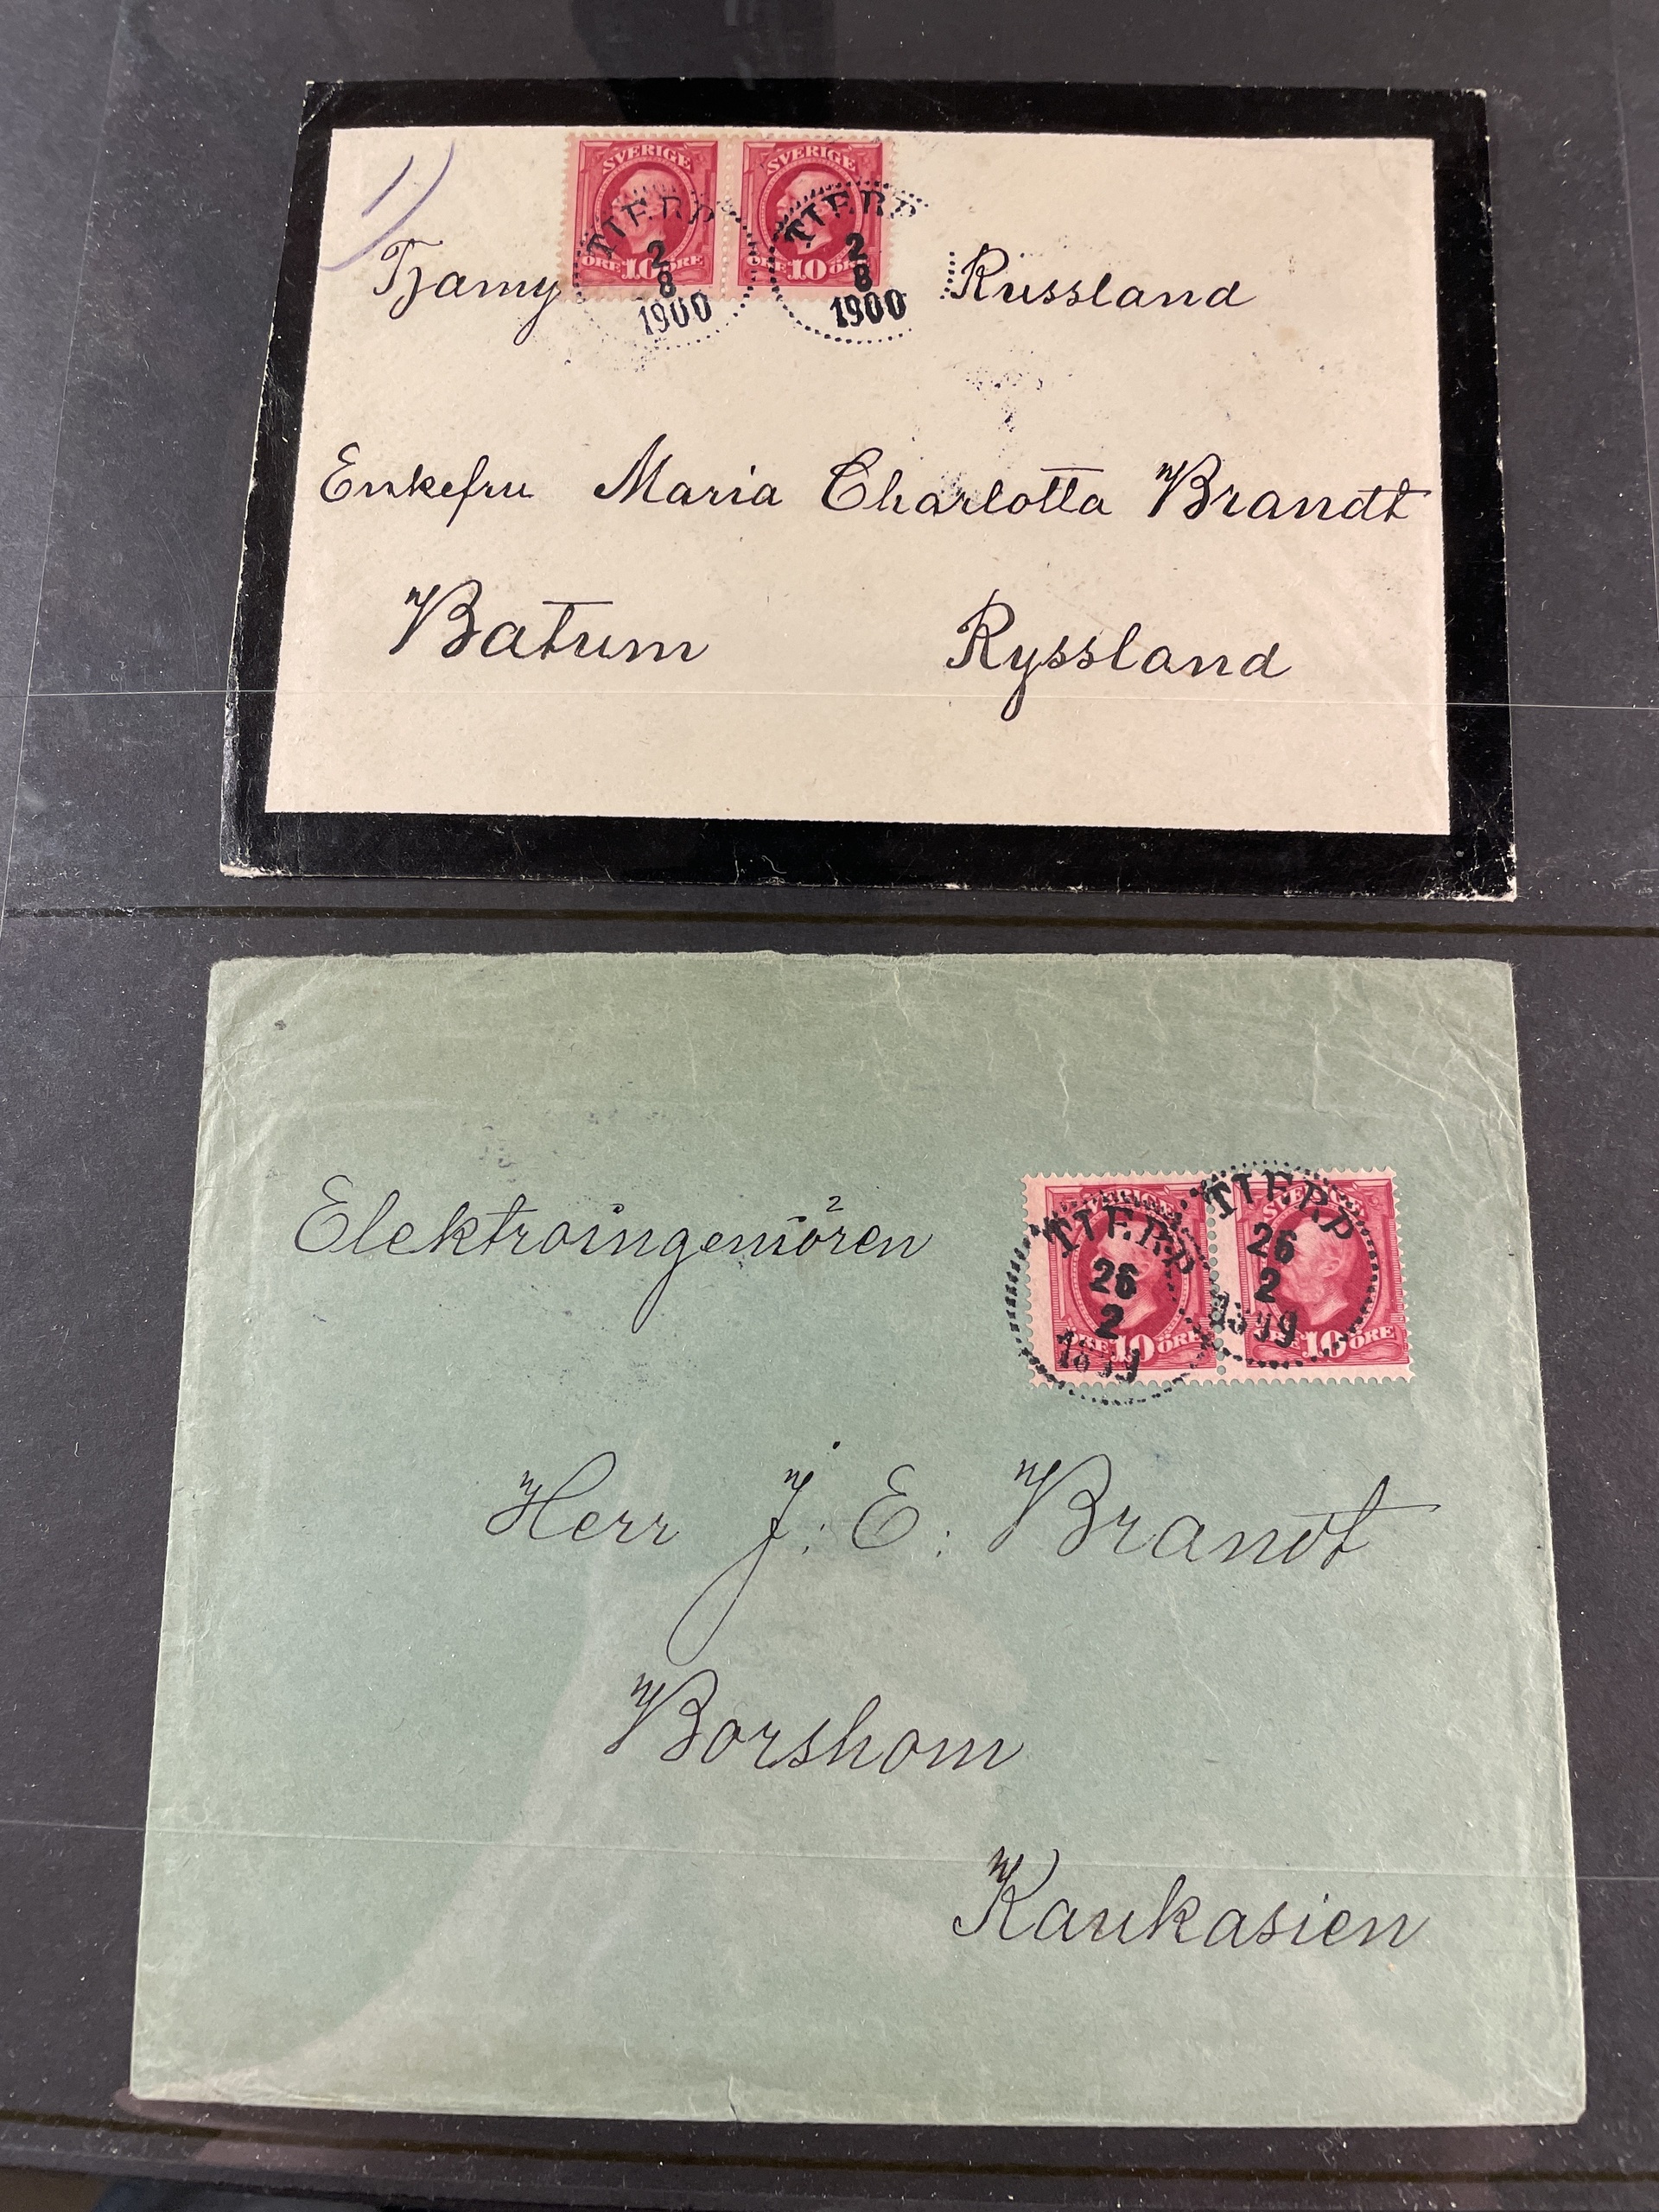 1)
SVERIGE SVERIGE
ÖRE 10 ÖRE ÖRE 10 ÖRE
TIERP TIERP
2 2
8 8
1900 1900
Russland
Enkefru Maria Charlotta Brandt
Batum Ryssland
SVERIGE SVERIGE
TIERP TIERP
26 26
2 2
1899 1899
ÖRE 10 ÖRE 10 ÖRE
Elektroingeniören
Herr J: E: Brandt
Borshom
Kaukasien